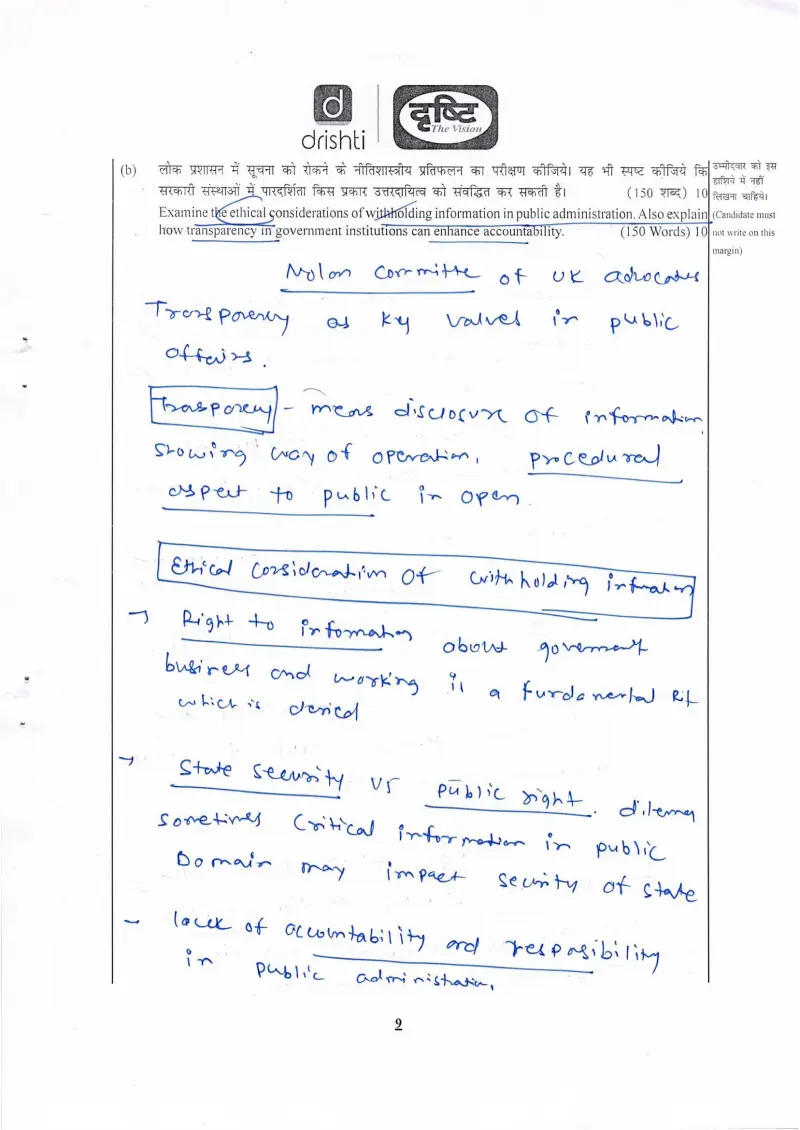 d
drishti
दृष्टि
The Vision
(b) लोक प्रशासन में सूचना को रोकने के नीतिशास्त्रीय प्रतिफलन का परीक्षण कीजिये। यह भी स्पष्ट कीजिये कि
सरकारी संस्थाओं में पारदर्शिता किस प्रकार उत्तरदायित्व को संवर्द्धित कर सकती है। (150 शब्द) 10
Examine the ethical considerations of withholding information in public administration. Also explain
how transparency in government institutions can enhance accountability. (150 Words) 10
उम्मीदवार को इस
हाशिये में नहीं
लिखना चाहिये।
(Candidate must
not write on this
margin)
Nolan Committe of UK advocates
Transparency as key values in public
affairs.
Trasparency - means disclosure of information
showing way of operation, procedural
aspect to public in open.
Ethical Consideration of withholding information
→ Right to information about government
business and working is a fundamental Rit
which is denied
→ State Security vs public right. dilema
sometimes Critical information in public
Domain may impact security of state
- lack of accountability and resposibility
in public administration,
9